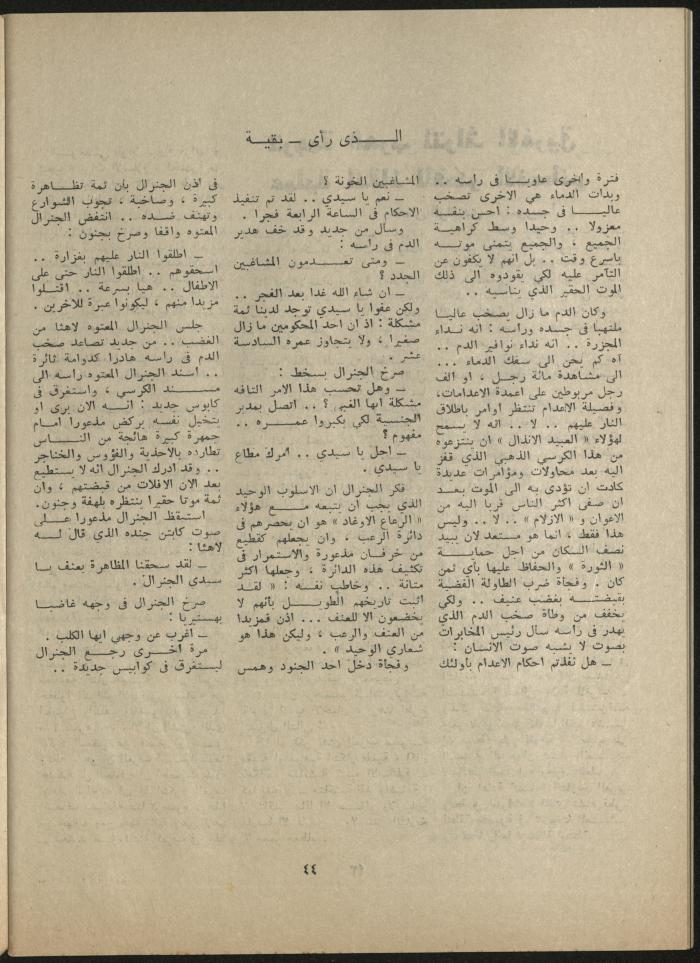 الـــــذى رأى ــ بقيـــة
فترة واخرى عاويــا فى راسه ..
وبدات الدماء هي الاخرى تصخب
عاليـــا فى جسده : احس بنفسه
معزولا .. وحيدا وسط كراهيـة
الجميع ، والجميع يتمنى موتــه
باسرع وقت .. بل انهم لا يكفون عن
التآمر عليه لكي يقودوه الى ذلك
الموت الحقير الذي يناسبه ..
وكان الدم ما زال يصخب عاليـا
ملتهبا فى جسده وراسه : انه نـداء
المجزرة .. انه نداء نوافير الدم ..
آه كم يحن الى سفك الدماء ...
الى مشاهدة مائة رجـل ، او الف
رجل مربوطين على اعمدة الاعدامات،
وفصيلة الاعدام تنتظر اوامر باطلاق
النار عليهم .. لا .. انه لا يسمح
لهؤلاء « العبيد الانذال » ان ينتزعوه
من هذا الكرسي الذهبي الذي قفز
اليه بعد محاولات ومؤامرات عديدة
كادت ان تؤدى به الى الموت بعــد
ان صفى اكثر الناس قربا اليه من
الاعوان و « الازلام » .. لا .. وليس
هذا فقط ، انما هو مستعد لان يبيد
نصف السكان من اجل حمايـــة
« الثورة » والحفاظ عليها بأي ثمن
كان . وفجأة ضرب الطاولة الفضية
بقبضتـــه بغضب عنيف .. ولكي
يخفف من وطاة صخب الدم الذي
يهدر فى راسه سأل رئيس المخابرات
بصوت لا يشبه صوت الانسان :
ــ هل نفذتم احكام الاعدام باولئك
المشاغبين الخونة ؟
ــ نعم يا سيدي .. لقد تم تنفيذ
الاحكام فى الساعة الرابعة فجرا .
وسأل من جديد وقد خف هدير
الدم فى راسه :
ــ ومتى تعـــدمون المشاغبين
الجدد ؟
ــ ان شاء الله غدا بعد الفجر ..
ولكن عفوا يا سيدي توجد لدينا ثمة
مشكلة : اذ ان احد المحكومين ما زال
صغيرا ، ولا يتجاوز عمره السادسة
عشر .
صرخ الجنرال بسخط :
ــ وهل تحسب هذا الامر التافه
مشكلة ايها الغبي ؟ .. اتصل بمدير
الجنسية لكي يكبروا عمـــره ..
مفهوم ؟
ــ اجل يا سيدي .. امرك مطاع
يا سيدي .
فكر الجنرال ان الاسلوب الوحيد
الذي يجب ان يتبعه مـــع هؤلاء
« الرعاع الاوغاد » هو ان يحصرهم فى
دائرة الرعب ، وان يجعلهم كقطيع
من خرفــان مذعورة والاستمرار فى
تكثيف هذه الدائرة ، وجعلها اكثر
متانة .. وخاطب نفسه : « لقــد
اثبت تاريخهم الطويـــل بأنهم لا
يخضعون الا للعنف ... اذن فمزيدا
من العنف والرعب ، وليكن هذا هو
شعاري الوحيد » .
وفجأة دخل احد الجنود وهمس
فى اذن الجنرال بان ثمة تظـــاهرة
كبيرة ، وصاخبة ، تجوب الشوارع
وتهتف ضده .. انتفض الجنرال
المعتوه واقفا وصرخ بجنون :
ــ اطلقوا النار عليهم بغزارة ..
اسحقوهم .. اطلقوا النار حتى على
الاطفال .. هيا بسرعة .. اقتــلوا
مزيدا منهم ، ليكونوا عبرة للآخرين .
جلس الجنرال المعتوه لاهثا من
الغضب .. من جديد تصاعد صخب
الدم فى راسه هادرا كدوامة ثائرة
.. اسند الجنرال المعتوه راسه الى
مســـند الكرسي ، واستغرق فى
كابوس جديد : انـــه الان يرى او
يتخيل نفسه يركض مذعورا امـام
جمهرة كبيرة هائجة من النـــاس
تطارده بالاحذية والفؤوس والخناجر
.. وقد ادرك الجنرال انه لا يستطيع
بعد الان الافلات من قبضتهم ، وان
ثمة موتا حقيرا ينتظره بلهفة وجنون.
استيقظ الجنرال مذعورا علــى
صوت كابتن جنده الذي قال لـــه
لاهثا :
ــ لقد سحقنا المظاهرة بعنف يــا
سيدي الجنرال .
صرخ الجنرال فى وجهه غاضبـا
بهستيريا :
ــ اغرب عن وجهي ايها الكلب .
مرة اخــرى رجــع الجنرال
ليستغرق فى كوابيس جديدة ..
٤٤